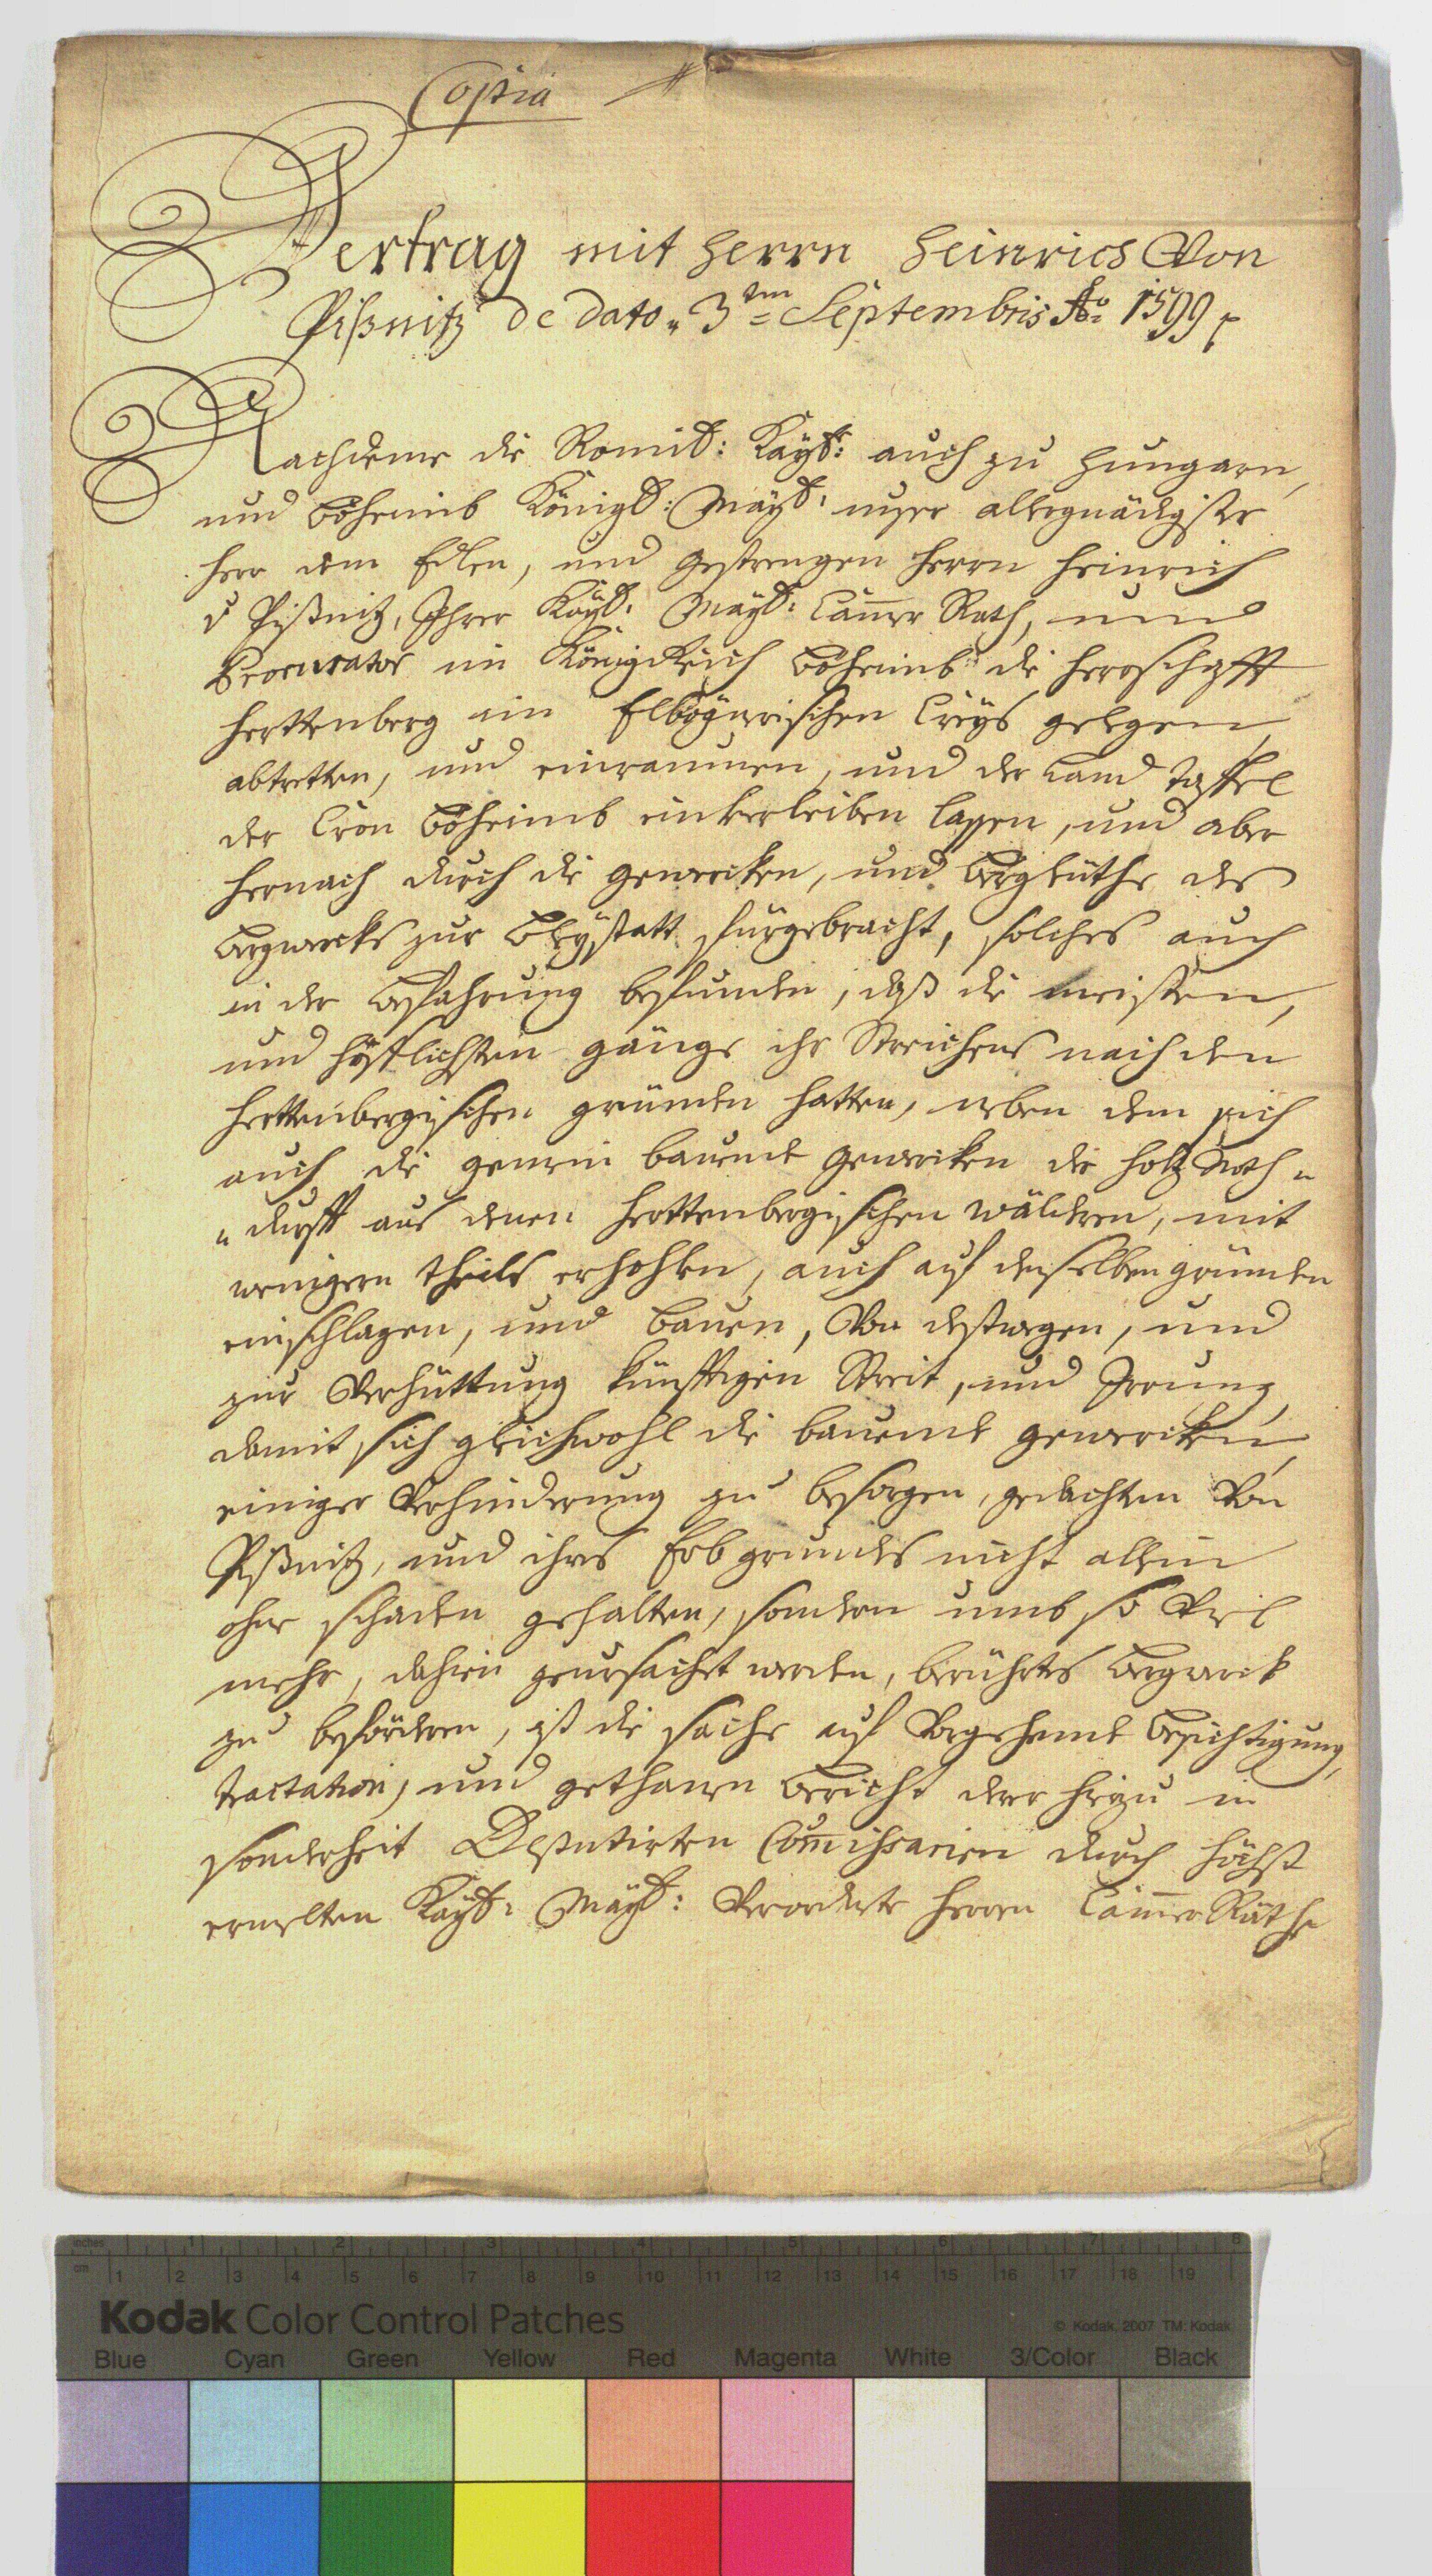 Copia
Vertrag mit Herrn Heinrich Von
Pißnitz de dato 3ten Septembris Ao: 1599
Nachdeme die Römis: Kayß: auch zu Hungarn,
und Böheimb Königl: Mayß: unser allergnädigster
Herr dem Edlen, und Gestrengen Herrn Heinrich
v Pißnitz, Ihrer Kayß: Mayß: Cam̄er Rath, und
Procurator im Königreich Böheimb die Herrschafft
Herttenberg im Elbögnerischen Creÿs gelegen,
abtretten, und einraumen, und der Land Taffel
der Cron Böheimb einverleiben lassen, und aber
hernach durch die Gewercken, und Bergleüthe des
Bergwercks zur Bleÿstatt fürgebracht, solches auch
in der Befahrung befunden, daß die meisten,
und höfflichsten gänge ihr Streichens nach den
Herttenbergischen gründen hatten, neben dem sich
auch die gemein bauende Gewercken die Holz Noth„
„durfft aus denen Herttenbergischen Wäldern, mit
wenigern theils erhohlen, auch auf denselben gründen
einschlagen, und bauen, Von destwegen, und
zur Verhüttung künfftigen Streit, und Irrung,
damit sich gleichwohl die bauende gewercken,
einiger Verhinderung zu besorgen, gedachten Von
Pißnitz, und ihres Erbgrundes nicht allein
ohne schaden gehalten, sondern umb so Viel
mehr, dahin geursachet werden, berührtes Bergwerck
zu beförderen, ist die sache auf Vorgehende Besichtigung,
tractation, und gethanen Bericht derer hiezu in
sonderheit Deputirten Com̄issarien durch höchst
ermelten Kayß: Mayß: Verordnete Herren Cam̄er Räthe
inches 1 2 3 4 5 6 7 8
cm 1 2 3 4 5 6 7 8 9 10 11 12 13 14 15 16 17 18 19
Kodak Color Control Patches
© Kodak, 2007 TM: Kodak
Blue Cyan Green Yellow Red Magenta White 3/Color Black